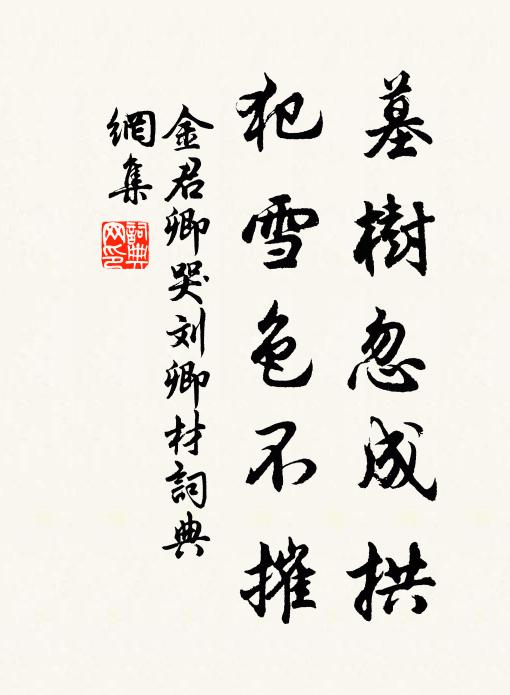 墓樹忽成拱
犯雪色不摧
金君卿哭刘卿材詞典
網集
詞典
网印